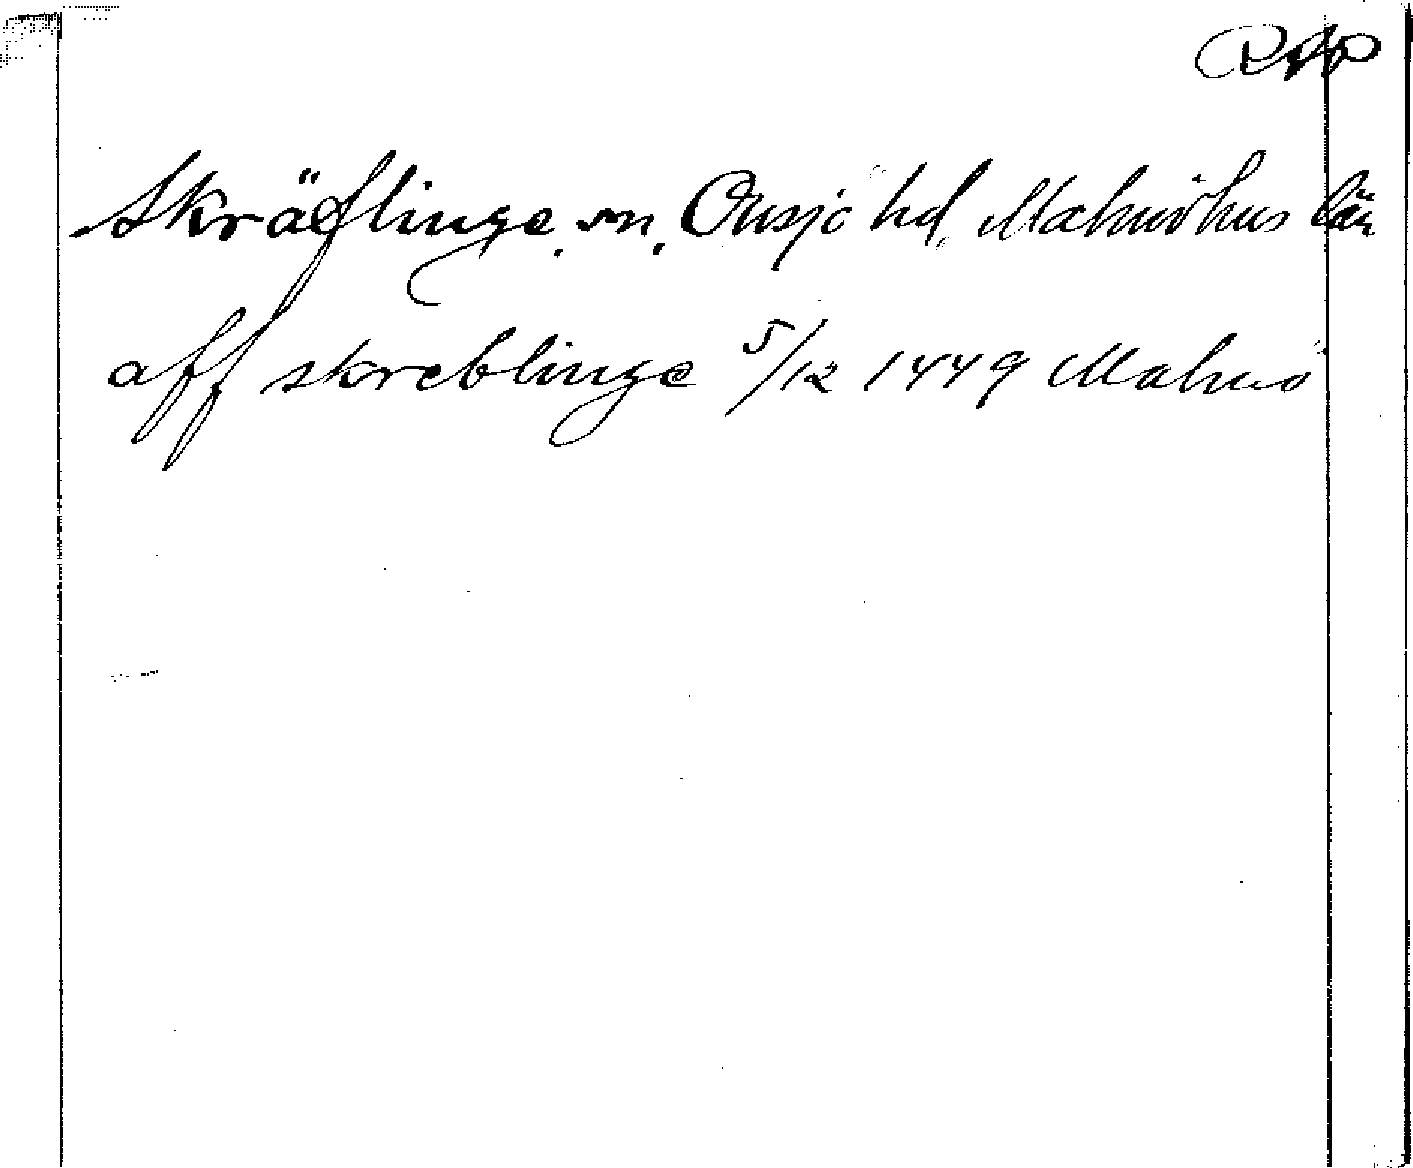 RAp
Skräflinge sn. Onsjö hd, Malmöhus län
aff skreblinge 5/12 1449 Malmö